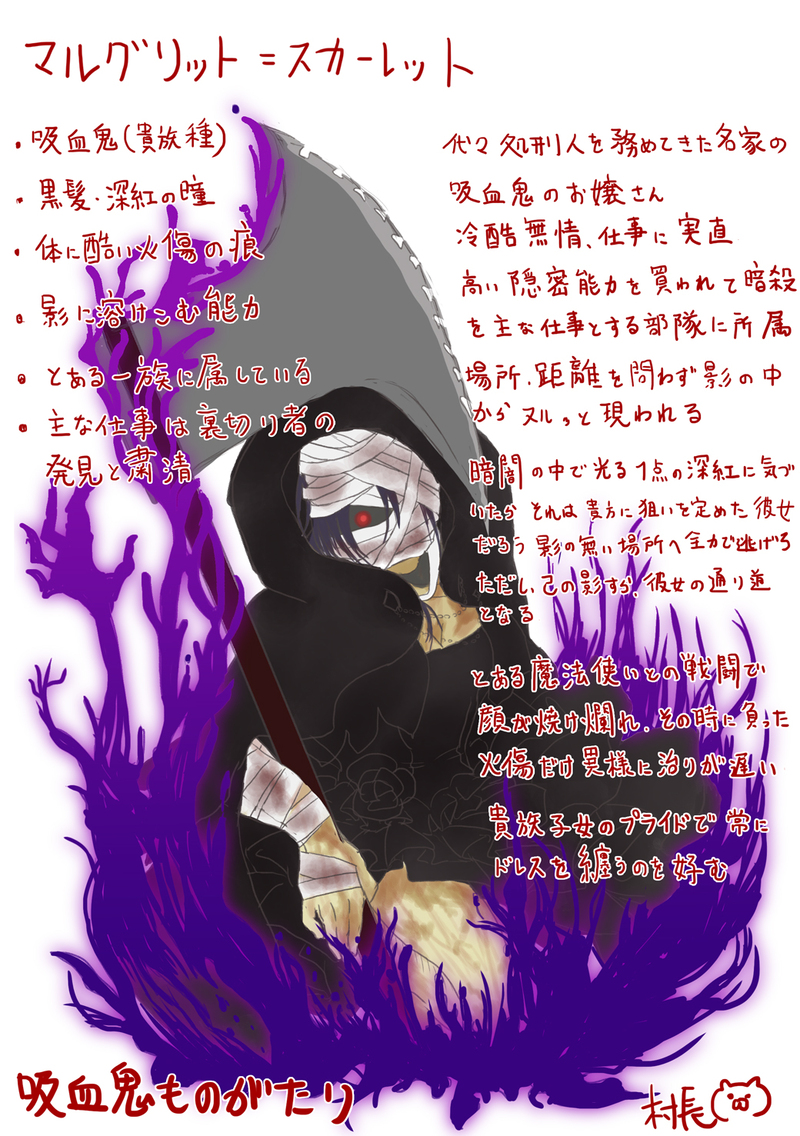 マルグリット=スカーレット
・吸血鬼(貴族種)
・黒髪・深紅の瞳
・体に酷い火傷の痕
・影に溶けこむ能力
・とある一族に属している
・主な仕事は裏切り者の
発見と粛清
代々処刑人を務めてきた名家の
吸血鬼のお嬢さん
冷酷無情、仕事に実直
高い隠密能力を買われて暗殺
を主な仕事とする部隊に所属
場所、距離を問わず影の中
からヌルっと現われる
暗闇の中で光る1点の深紅に気づ
いたらそれは貴方に狙いを定めた彼女
だろう 影の無い場所へ全力で逃げろ
ただし、己の影すら、彼女の通り道
となる
とある魔法使いとの戦闘で
顔が焼け爛れ、その時に負った
火傷だけ異様に治りが遅い
貴族子女のプライドで常に
ドレスを纏うのを好む
吸血鬼ものがたり
村長